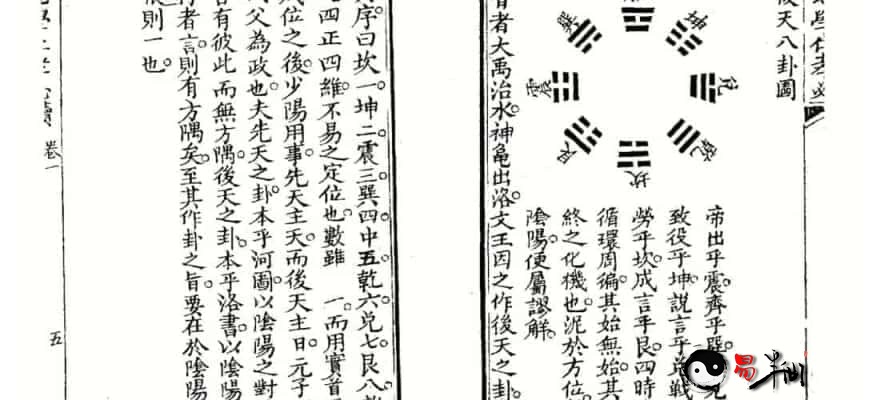 後天八卦圖
坤
巽
兌
震
乾
艮
坎
帝出乎震。齊乎巽。
致役乎坤。說言乎兌。戰
勞乎坎。成言乎艮。四時
循環周徧。其始無始。其
終之化機也。泥於方位。
陰陽便屬謬解。
昔者大禹治水。神龜出洛。文王因之作後天之卦。
序曰坎一。坤二。震三。巽四。中五。乾六。兌七。艮八。
四正四維。不易之定位也。數雖一。而用實首
位之後。少陽用事。先天主天。而後天主日。元子
父為政也。夫先天之卦。本乎河圖。以陰陽之對
有彼此而無方隅。後天之卦。本乎洛書。以陰陽
者言。則有方隅矣。至其作卦之旨。要在於陰陽
則一也。
卷一
五
易半仙